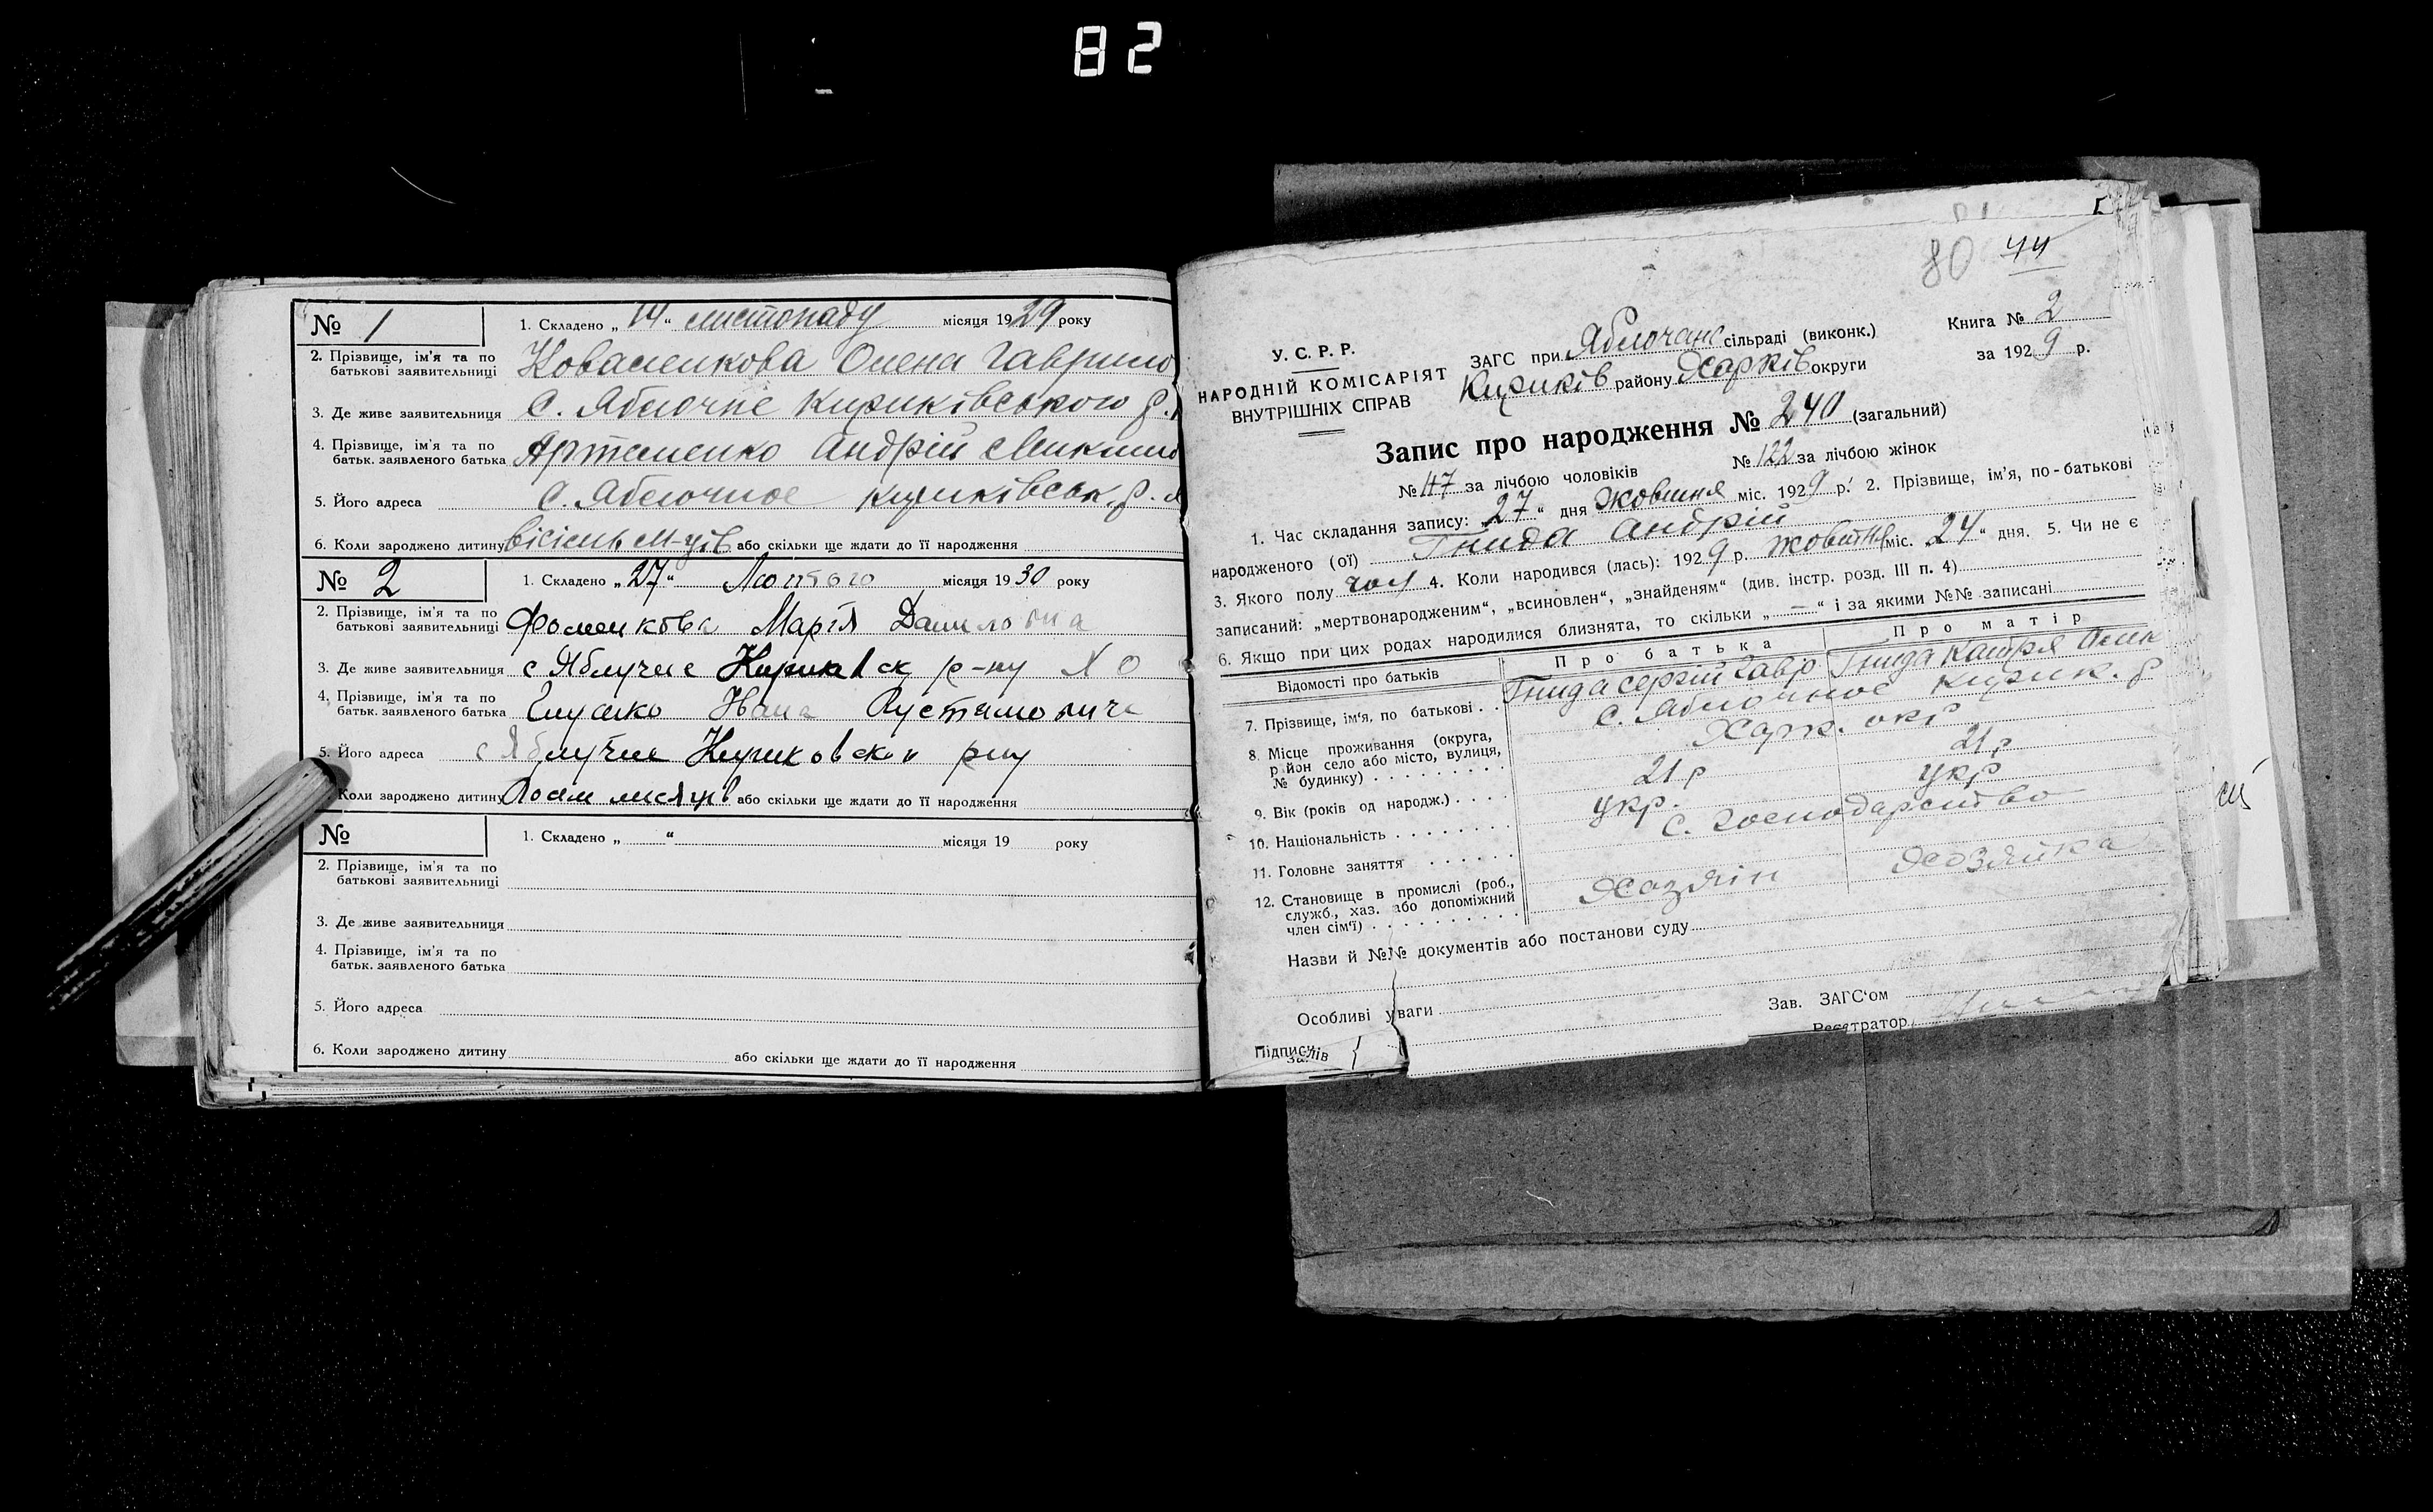 82
№ 1
1. Складено „14“ листопаду місяця 1929 року
2. Прізвище, ім'я та по батькові заявительниці Коваленкова Олена Гаврило
3. Де живе заявительниця С. Яблочне Кириківського р.
4. Прізвище, ім'я та по батьк. заявленого батька Артеменко Андрій Микито
5. Його адреса С. Яблочное Кириківськ. р.
6. Коли зароджено дитину вісім м-ців або скільки ще ждати до її народження
№ 2
1. Складено „27“ Лютого місяця 1930 року
2. Прізвище, ім'я та по батькові заявительниці Фоменкова Марія Даниловна
3. Де живе заявительниця с Яблучне Кириківск р-ну Х О
4. Прізвище, ім'я та по батьк. заявленого батька Глушко Ивана
5. Його адреса с Яблучне Кириковской рну
Коли зароджено дитину Восем місяців або скільки ще ждати до її народження
№
1. Складено „ “ місяця 19 року
2. Прізвище, ім'я та по батькові заявительниці
3. Де живе заявительниця
4. Прізвище, ім'я та по батьк. заявленого батька
5. Його адреса
6. Коли зароджено дитину або скільки ще ждати до її народження
80 44
У. С. Р. Р.
НАРОДНІЙ КОМІСАРІЯТ
ВНУТРІШНІХ СПРАВ
ЗАГС при Яблочанс сільраді (виконк.)
Кириків району Харків округи
Книга № 2
за 1929 р.
Запис про народження № 240 (загальний)
№ 117 за лічбою чоловіків № 122 за лічбою жінок
1. Час складання запису: „27“ дня Жовтня міс. 1929 р. 2. Прізвище, ім'я, по-батькові
народженого (ої) Гнида Андрій
3. Якого полу чол 4. Коли народився (лась): 1929 р. жовтня міс. 24“ дня. 5. Чи не є
записаний: „мертвонародженим“, „всиновлен“, „знайденям“ (див. інстр. розд. III п. 4)
6. Якщо при цих родах народилися близнята, то скільки „—“ і за якими №№ записані
Відомості про батьків Про батька Про матір
7. Прізвище, ім'я, по батькові Гнида Сергій Гавр Гнида Катря
8. Місце проживання (округа, район село або місто, вулиця, № будинку) С. Яблочное Кирик. р
Харк. окр
9. Вік (років од народж.) 21 р 21 р
10. Національність укр. укр
11. Головне заняття с. господарство
12. Становище в промислі (роб., служб., хаз. або допоміжний член сім'ї) Хазяін Хозяйка
Назви й №№ документів або постанови суду
Особливі уваги
Зав. ЗАГС'ом
Підписи
Реєстратор